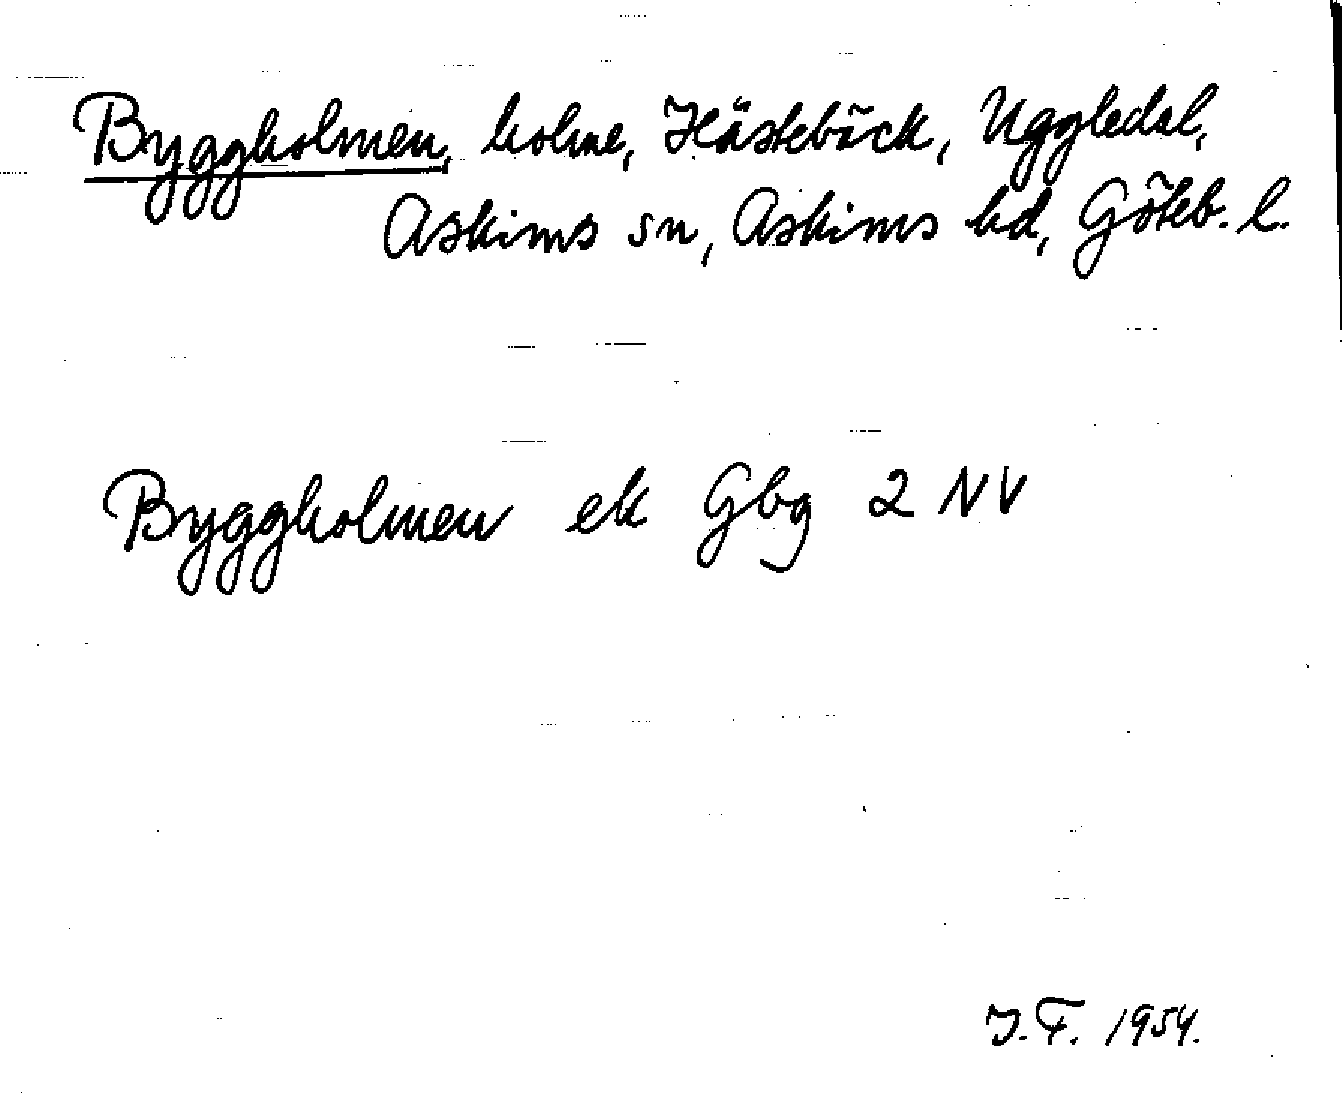 Byggholmen, holme, Hästebäck, Uggledal,
Askims sn, Askims hd, Göteb. l.
Byggholmen ek Gbg 2 NV
J.F. 1954.